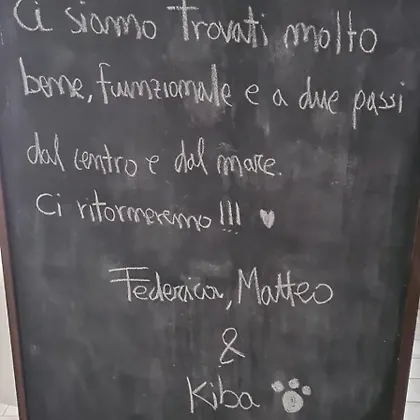 Ci siamo Trovati molto
bene, funzionale e a due passi
dal centro e dal mare.
Ci ritorneremo!!! ♥
Federica, Matteo
&
Kiba